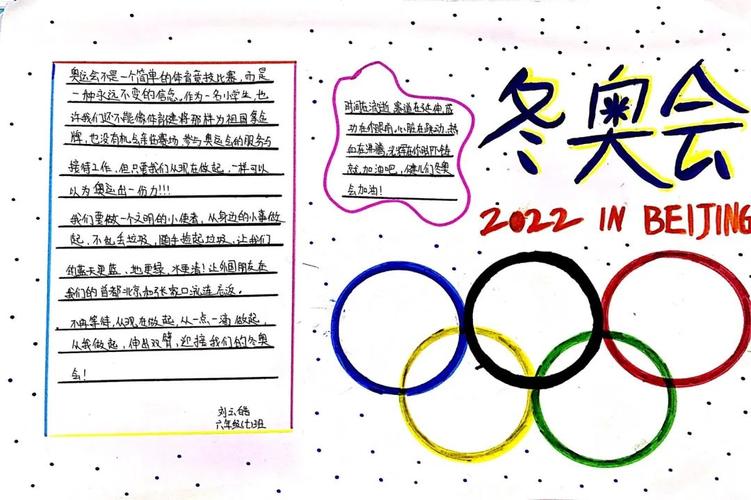 奥运会不是一个简单的体育竞技比赛,而是
一种永远不变的信念,作为一名小学生,也
许我们还不能像体育健将那样为祖国拿金
牌,也没有机会亲临赛场参与奥运会的服务与
接待工作,但只要我们从现在做起,一样可以
以为奥运出一份力!!!
我们要做一个文明的小使者,从身边的小事做
起,不乱丢垃圾,随手捡起垃圾,让我们
的蓝天更蓝、地更绿、水更清!让外国朋友在
我们的首都北京和张家口流连忘返。
不再等待,从现在做起,从一点一滴做起,
从我做起,伸出双臂,迎接我们的冬奥
会!
六年级(七)班
时间在流逝,赛道在延伸,成
功在你眼前,心脏在跃动,热
血在沸腾,光辉在你脚下铸
就,加油吧,健儿们冬奥
会加油!
冬奥会
2022 IN BEIJING